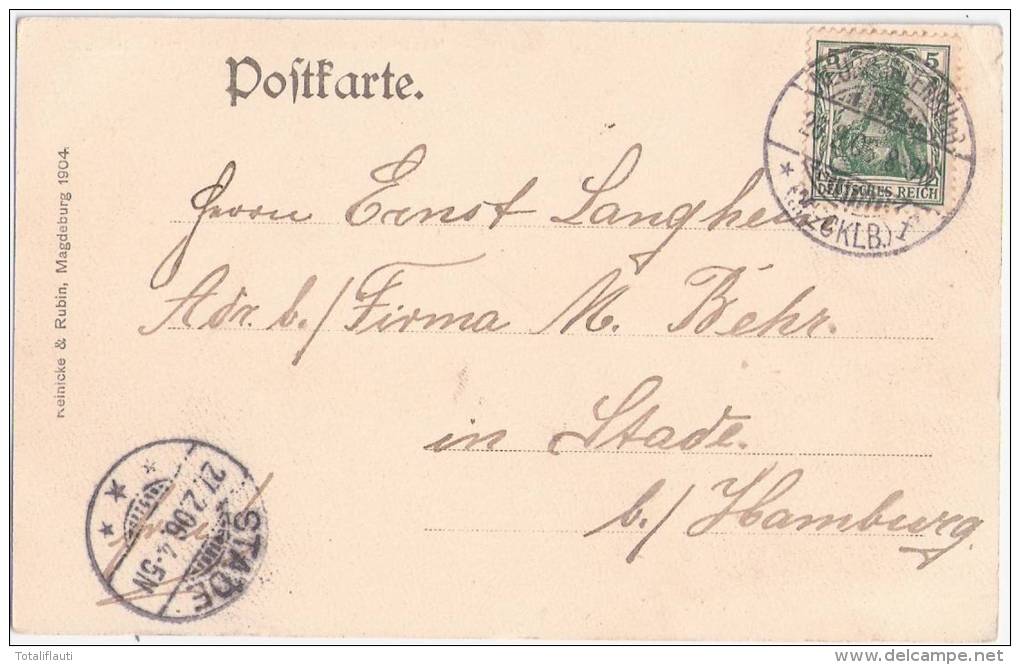 Postkarte.
5 5
DEUTSCHES REICH
(MECKLB.) 1
Herrn Ernst Langheim
Adr. b./ Firma M. Behr.
in Stade.
b./ Hamburg.
Reinicke & Rubin, Magdeburg 1904.
STADE
27.2.06. 4-5N
frei
Totaliflauti
www.delcampe.net